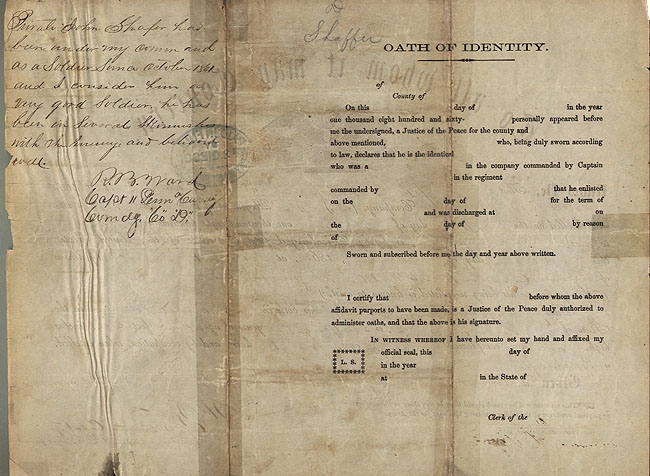 Private John Shafer has
been under my comm and
as a Soldier Since October 1861
and I consider him a
very good Soldier, he has
been in Several Skirmishes
with the enemy and behaved
well.
R. B. Ward
Capt 11 Penna Cavy
Comdg. Co "D"
D
Shaffer
OATH OF IDENTITY.
of
County of
On this day of in the year
one thousand eight hundred and sixty- personally appeared before
me the undersigned, a Justice of the Peace for the county and
above mentioned, who, being duly sworn according
to law, declares that he is the identical
who was a in the company commanded by Captain
in the regiment
commanded by that he enlisted
on the day of for the term of
and was discharged at on
the day of by reason
of
Sworn and subscribed before me the day and year above written.
I certify that before whom the above
affidavit purports to have been made, is a Justice of the Peace duly authorized to
administer oaths, and that the above is his signature.
IN WITNESS WHEREOF I have hereunto set my hand and affixed my
official seal, this day of
L. S.
in the year
at in the State of
Clerk of the